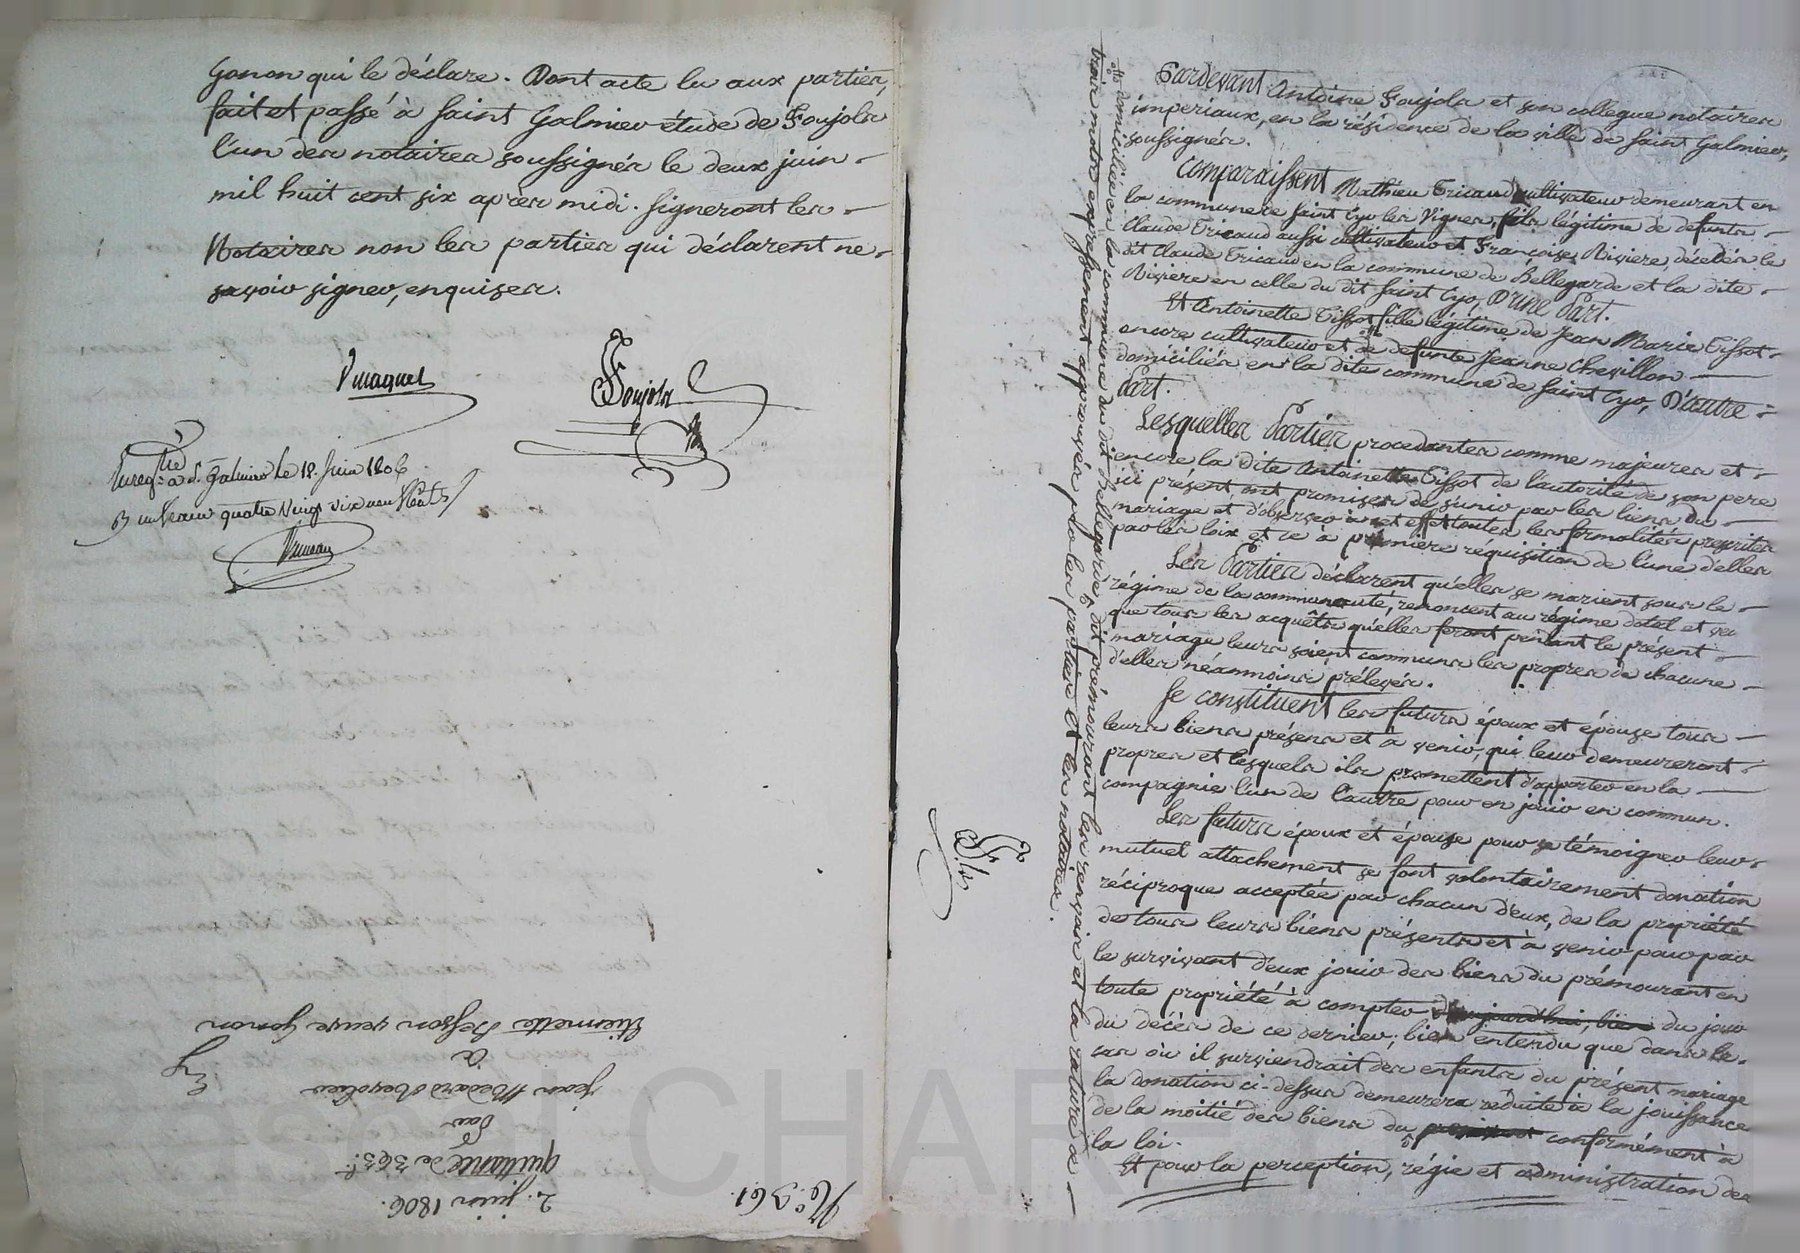 Gonon qui le déclare. Dont acte lu aux parties,
fait et passé à Saint Galmier étude de Foujols
l'un des notaires soussignés le deux juin
mil huit cent six après midi. Signeront les
Notaires non les parties qui déclarent ne
savoir signer, enquises.
Foujols
à St Galmier le 12 Juin 1806
N° 361.
2. juin 1806.
quittance de 363 f
Par
jean Medard
à
Etiennette Besson veuve Gonon
Pardevant Antoine Foujols et son collegue notaires
imperiaux, en la résidence de la ville de Saint Galmier,
soussignés.
Comparaissent Mathieu Tricaud cultivateur demeurant en
la commune de Saint Cyr les Vignes, fils légitime de defunts
Claude Tricaud aussi cultivateur et Françoise Riviere, décédés le
dit Claude Tricaud en la commune de Bellegarde et la dite
Riviere en celle du dit Saint Cyr, D'une Part.
Et Antoinette Tissot fille légitime de Jean Marie Tissot
encore cultivateur et de defunte Jeanne Chevillon
domiciliés en la dite commune de Saint Cyr, D'autre
Part.
Lesquelles Parties procedantes comme majeures et
encore la dite Antoinette Tissot de l'autorité de son pere
ici présent ont promises de s'unir par les liens du
mariage et d'observer à cet effet toutes les formalités prescrites
par les loix et ce à premiere réquisition de l'une d'elles
Les Parties déclarent qu'elles se marient sous le
régime de la communauté, renoncent au régime dotal et
que tous les acquêts qu'elles feront pendant le présent
mariage leurs soient communs les propres de chacune
d'elles néammoins prélevés.
Se constituent les futurs époux et épouse tous
leurs biens présens et à venir, qui leur demeureront
propres et lesquels ils promettent d'apporter en la
compagnie l'un de l'autre pour en jouir en commun.
Les futurs époux et épouse pour se témoigner leur
mutuel attachement se font volontairement donation
réciproque acceptée par chacun d'eux, de la propriété
de tous leurs biens présents et à venir pour par
le survivant d'eux jouir des biens du prémourant en
toute propriété à compter d'aujourd'hui, bien du jour
du décès de ce dernier; bien entendu que dans le
cas où il surviendrait des enfants du présent mariage
la donation ci-dessus demeurera réduite à la jouissance
de la moitié des biens du conformément à
la loi.
Et pour la perception, régie et administration des
domiciliés en la commune du dit Bellegarde, dit prémourant les renvois et la rature de
trois mots expressément approuvés par les parties et les notaires.